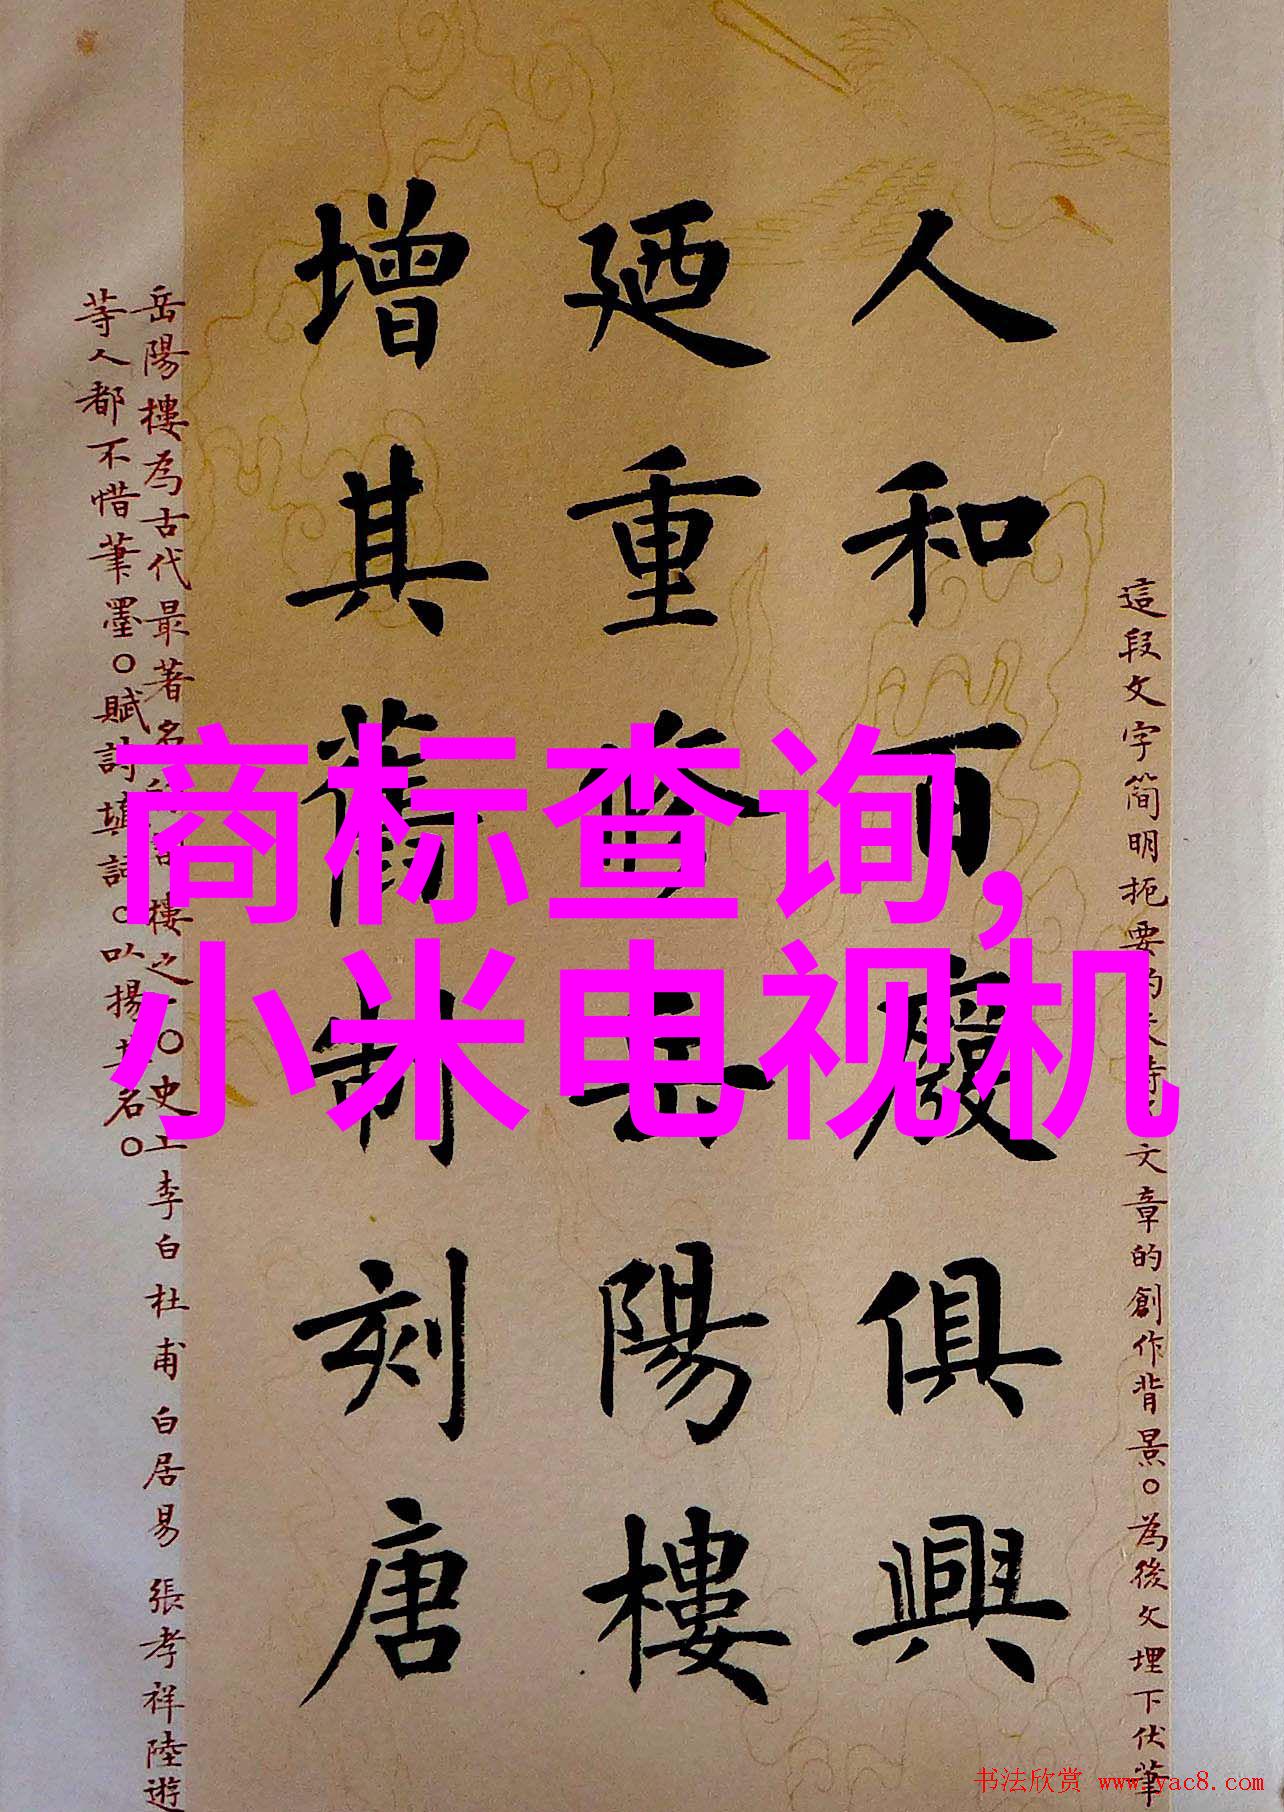 商标查询,
小米电视机
這段文字简明扼要的
文章的創作背景。為後文埋下伏筆
人和百廢俱興
廼重修岳陽樓
增其舊制刻唐
岳陽樓為古代最著名
樓之一。史上李白 杜甫 白居易 張孝祥 陸遊
等人都不惜筆墨。賦詩填詞。以揚其名。
书法欣赏 www.yac8.com